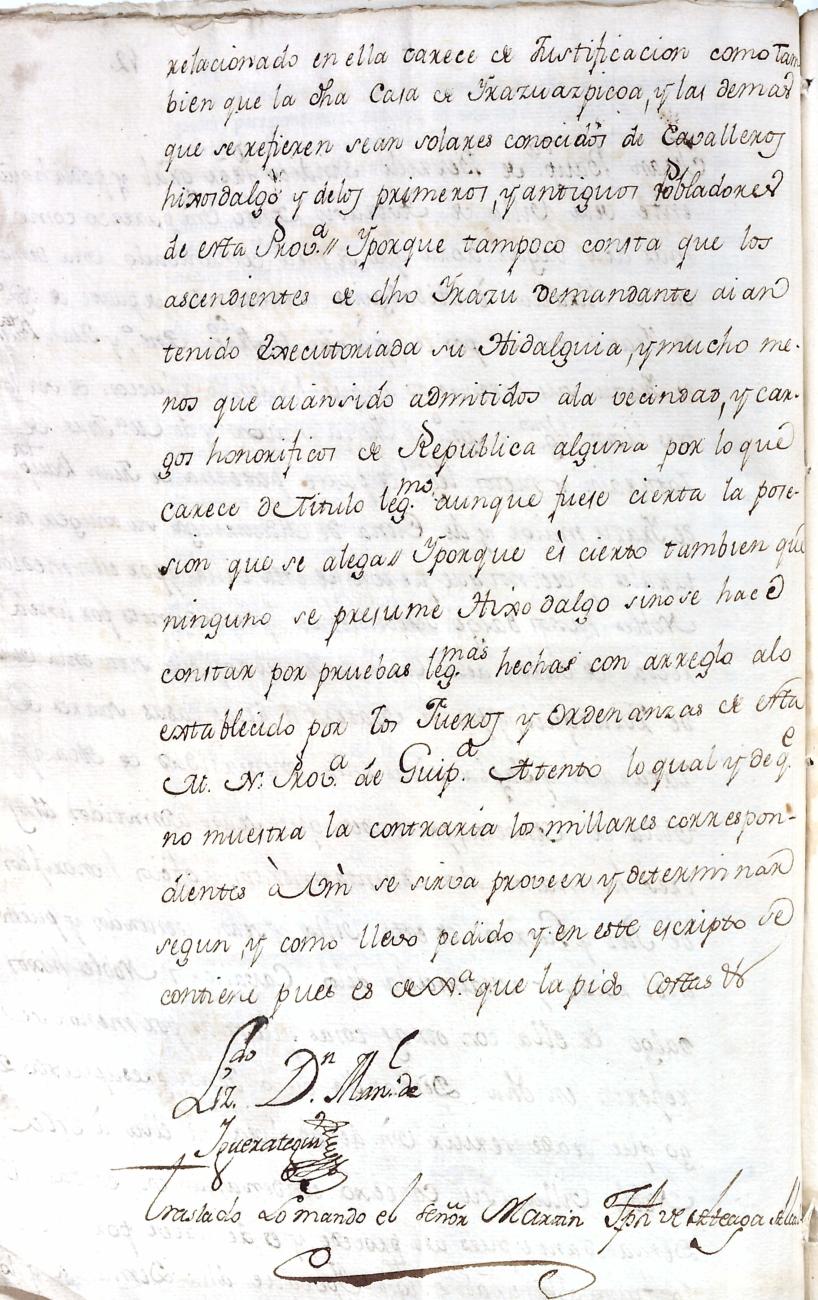 relacionado en ella carece de Justificacion como tam
bien que la dha Casa de Yrazuazpicoa, y las demas
que se refieren sean solares conocidos de Cavalleros
hixosdalgo y delos primeros, y antiguos Pobladores
de esta Prov.a // Yporque tampoco consta que los
ascendientes de dho Yrazu Demandante aian
tenido Executoriada su Hidalguia, y mucho me-
nos que aiansido admitidos ala vecindad, y car-
gos honorificos de Republica alguna por lo que
carece de Titulo leg.mo aunque fuese cierta la pose-
sion que se alega // Yporque és cierto tambien que
ninguno se presume Hixodalgo sinose hace
constar por pruebas leg.mas hechas con arreglo alo
extablecido por los Fueros y Ordenanzas de esta
M. N. Prov.a de Guip.a Atento lo qual y de q.e
no muestra la contraria los millares correspon-
dientes à Vm se sirva proveer y determinar
segun, y como llevo pedido y en este escripto se
contiene pues es de Xa. que la pido Costas &
Liz.do D.n Man.l de
Ypuzategui
Traslado Lo mando el señor Martin Jph de